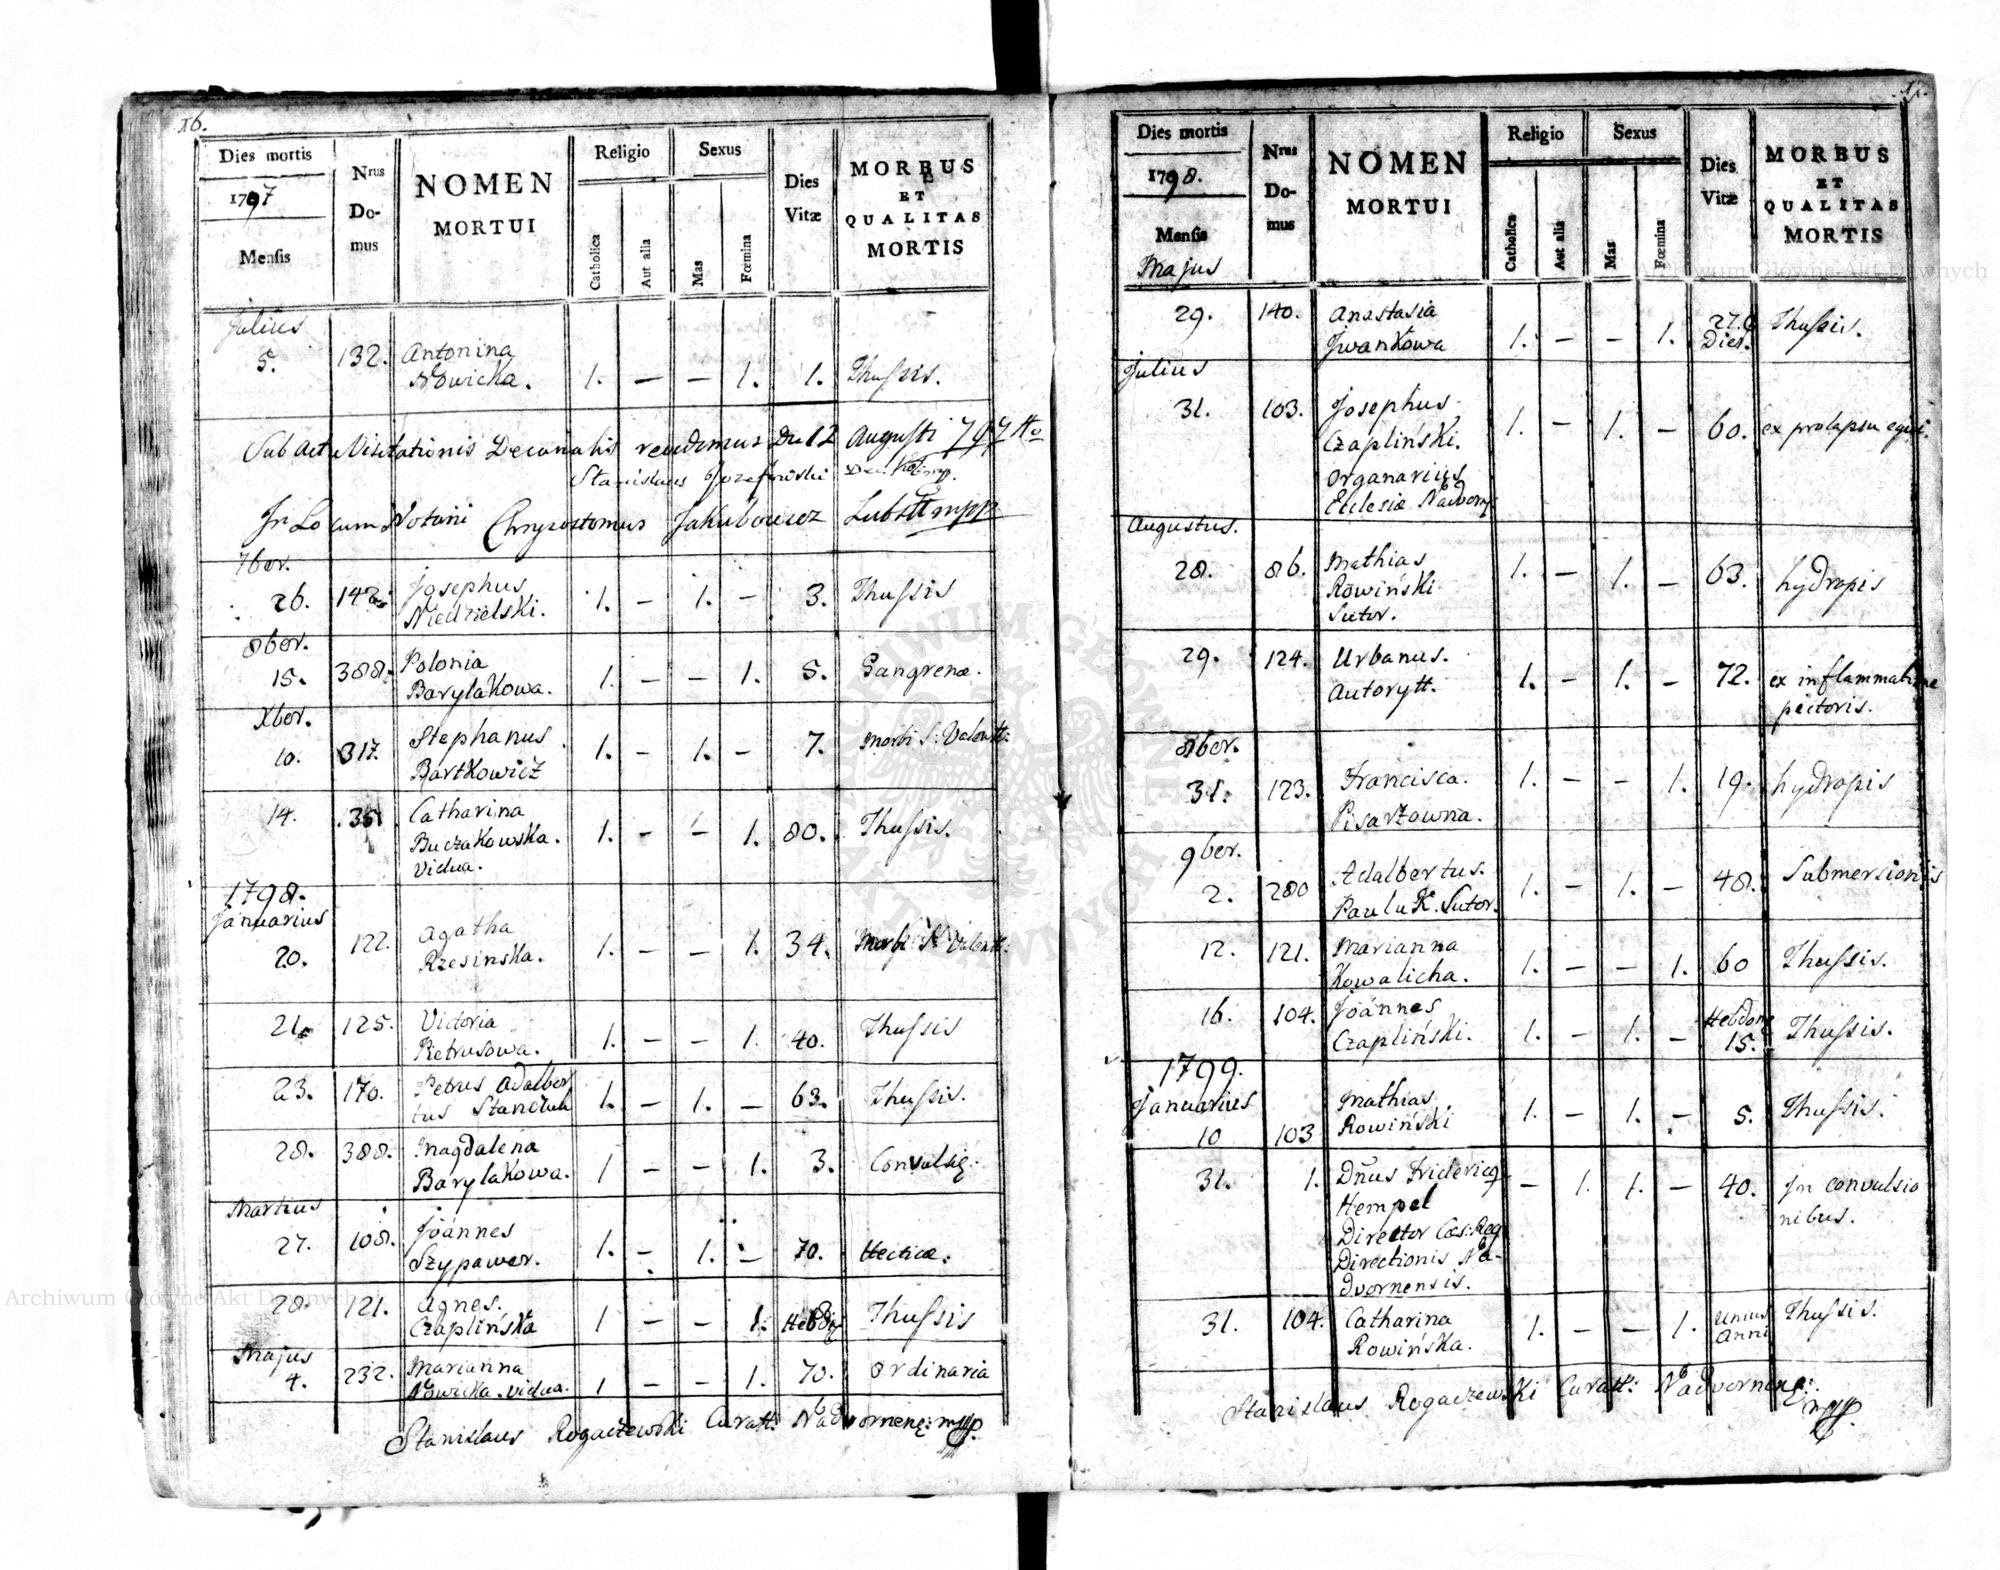 16.
Dies mortis
1797
Mensis
Nrus
Do-
mus
NOMEN
MORTUI
Religio
Catholica
Aut alia
Sexus
Mas
Fœmina
Dies
Vitæ
MORBUS
ET
QUALITAS
MORTIS
Julius
5. 132. Antonina
Nowicka. 1. — — 1. 1. Thussis.
Sub Act Visitationis Decanalis rendimus Die 12 Augusti 797
Stanislaus Jozefowski
In Locum Notarii Chrysostomus Jakubowicz
7ber.
26. 142. Josephus
Niedzielski. 1. — 1. — 3. Thussis
8ber.
15. 388. Polonia
Barylakowa. 1. — — 1. 5. Gangrenæ.
Xber.
10. 317. Stephanus
Bartkowicz 1. — 1. — 7. Morbi S: Valentt:
14. 35 Catharina
Buczakowska.
Vidua. 1. — — 1. 80. Thussis.
1798.
Januarius
20. 122. Agatha
Rzesinska. 1. — — 1. 34. Morbi S: Valentt:
21. 125. Victoria
Pietrusowa. 1. — — 1. 40. Thussis
23. 170. Petrus Adalber
tus Stanciuk 1. — 1. — 63. Thussis.
28. 388. Magdalena
Barylakowa. 1 — — 1. 3. Convulsię:
Martius
27. 108. Joánnes
Szypawer. 1. — 1. — 70. Hecticæ.
28. 121. Agnes.
Czaplińska 1 — — 1. 8 Thussis
Majus
4. 232. Marianna
Nowicka. Vidua. 1 — — 1. 70. Ordinaria
Stanislaus Rogaczewski Curatt: Nadvornenę: mpp.
17.
Dies mortis
1798.
Mensis
Majus
Nrus
Do-
mus
NOMEN
MORTUI
Religio
Catholica
Aut alia
Sexus
Mas
Fœmina
Dies
Vitæ
MORBUS
ET
QUALITAS
MORTIS
29. 140. Anastasia
Iwankowa 1. — — 1. 27.
Dies. Thussis.
Julius
31. 103. Josephus
Czapliński.
Organarius
Ecclesiæ Nadvorn 1. — 1. — 60. ex prolapsu equi.
Augustus.
28. 86. Mathias
Rowiński
Sutor. 1. — 1. — 63. hydropis
29. 124. Urbanus.
Autorytt. 1. — 1. — 72. ex inflammatione
pectoris.
8ber.
31. 123. Francisca.
Pisarzowna. 1. — — 1. 19. hydropis
9ber.
2. 280 Adalbertus.
Pauluk. Sutor. 1. — 1. — 48. Submersionis
12. 121. Marianna
Kowalicha. 1. — — 1. 60 Thussis.
16. 104. Joánnes
Czapliński. 1. — 1. — Hebdom
15. Thussis.
1799.
Januarius
10 103 Mathias
Rowiński 1. — 1. — 5. Thussis.
31. 1. Dñus Fridericq
Hempel
Director Cæs: Reg
Directionis Na-
dvornensis. — 1. 1. — 40. In convulsio
nibus.
31. 104. Catharina
Rowińska. 1. — — 1. Unius
Anni Thussis.
Stanislaus Rogaczewski Curatt: Nadvornenę:
mpp.
Archiwum Główne Akt Dawnych
Archiwum Główne Akt Dawnych
ARCHIWUM GŁÓWNE AKT DAWNYCH